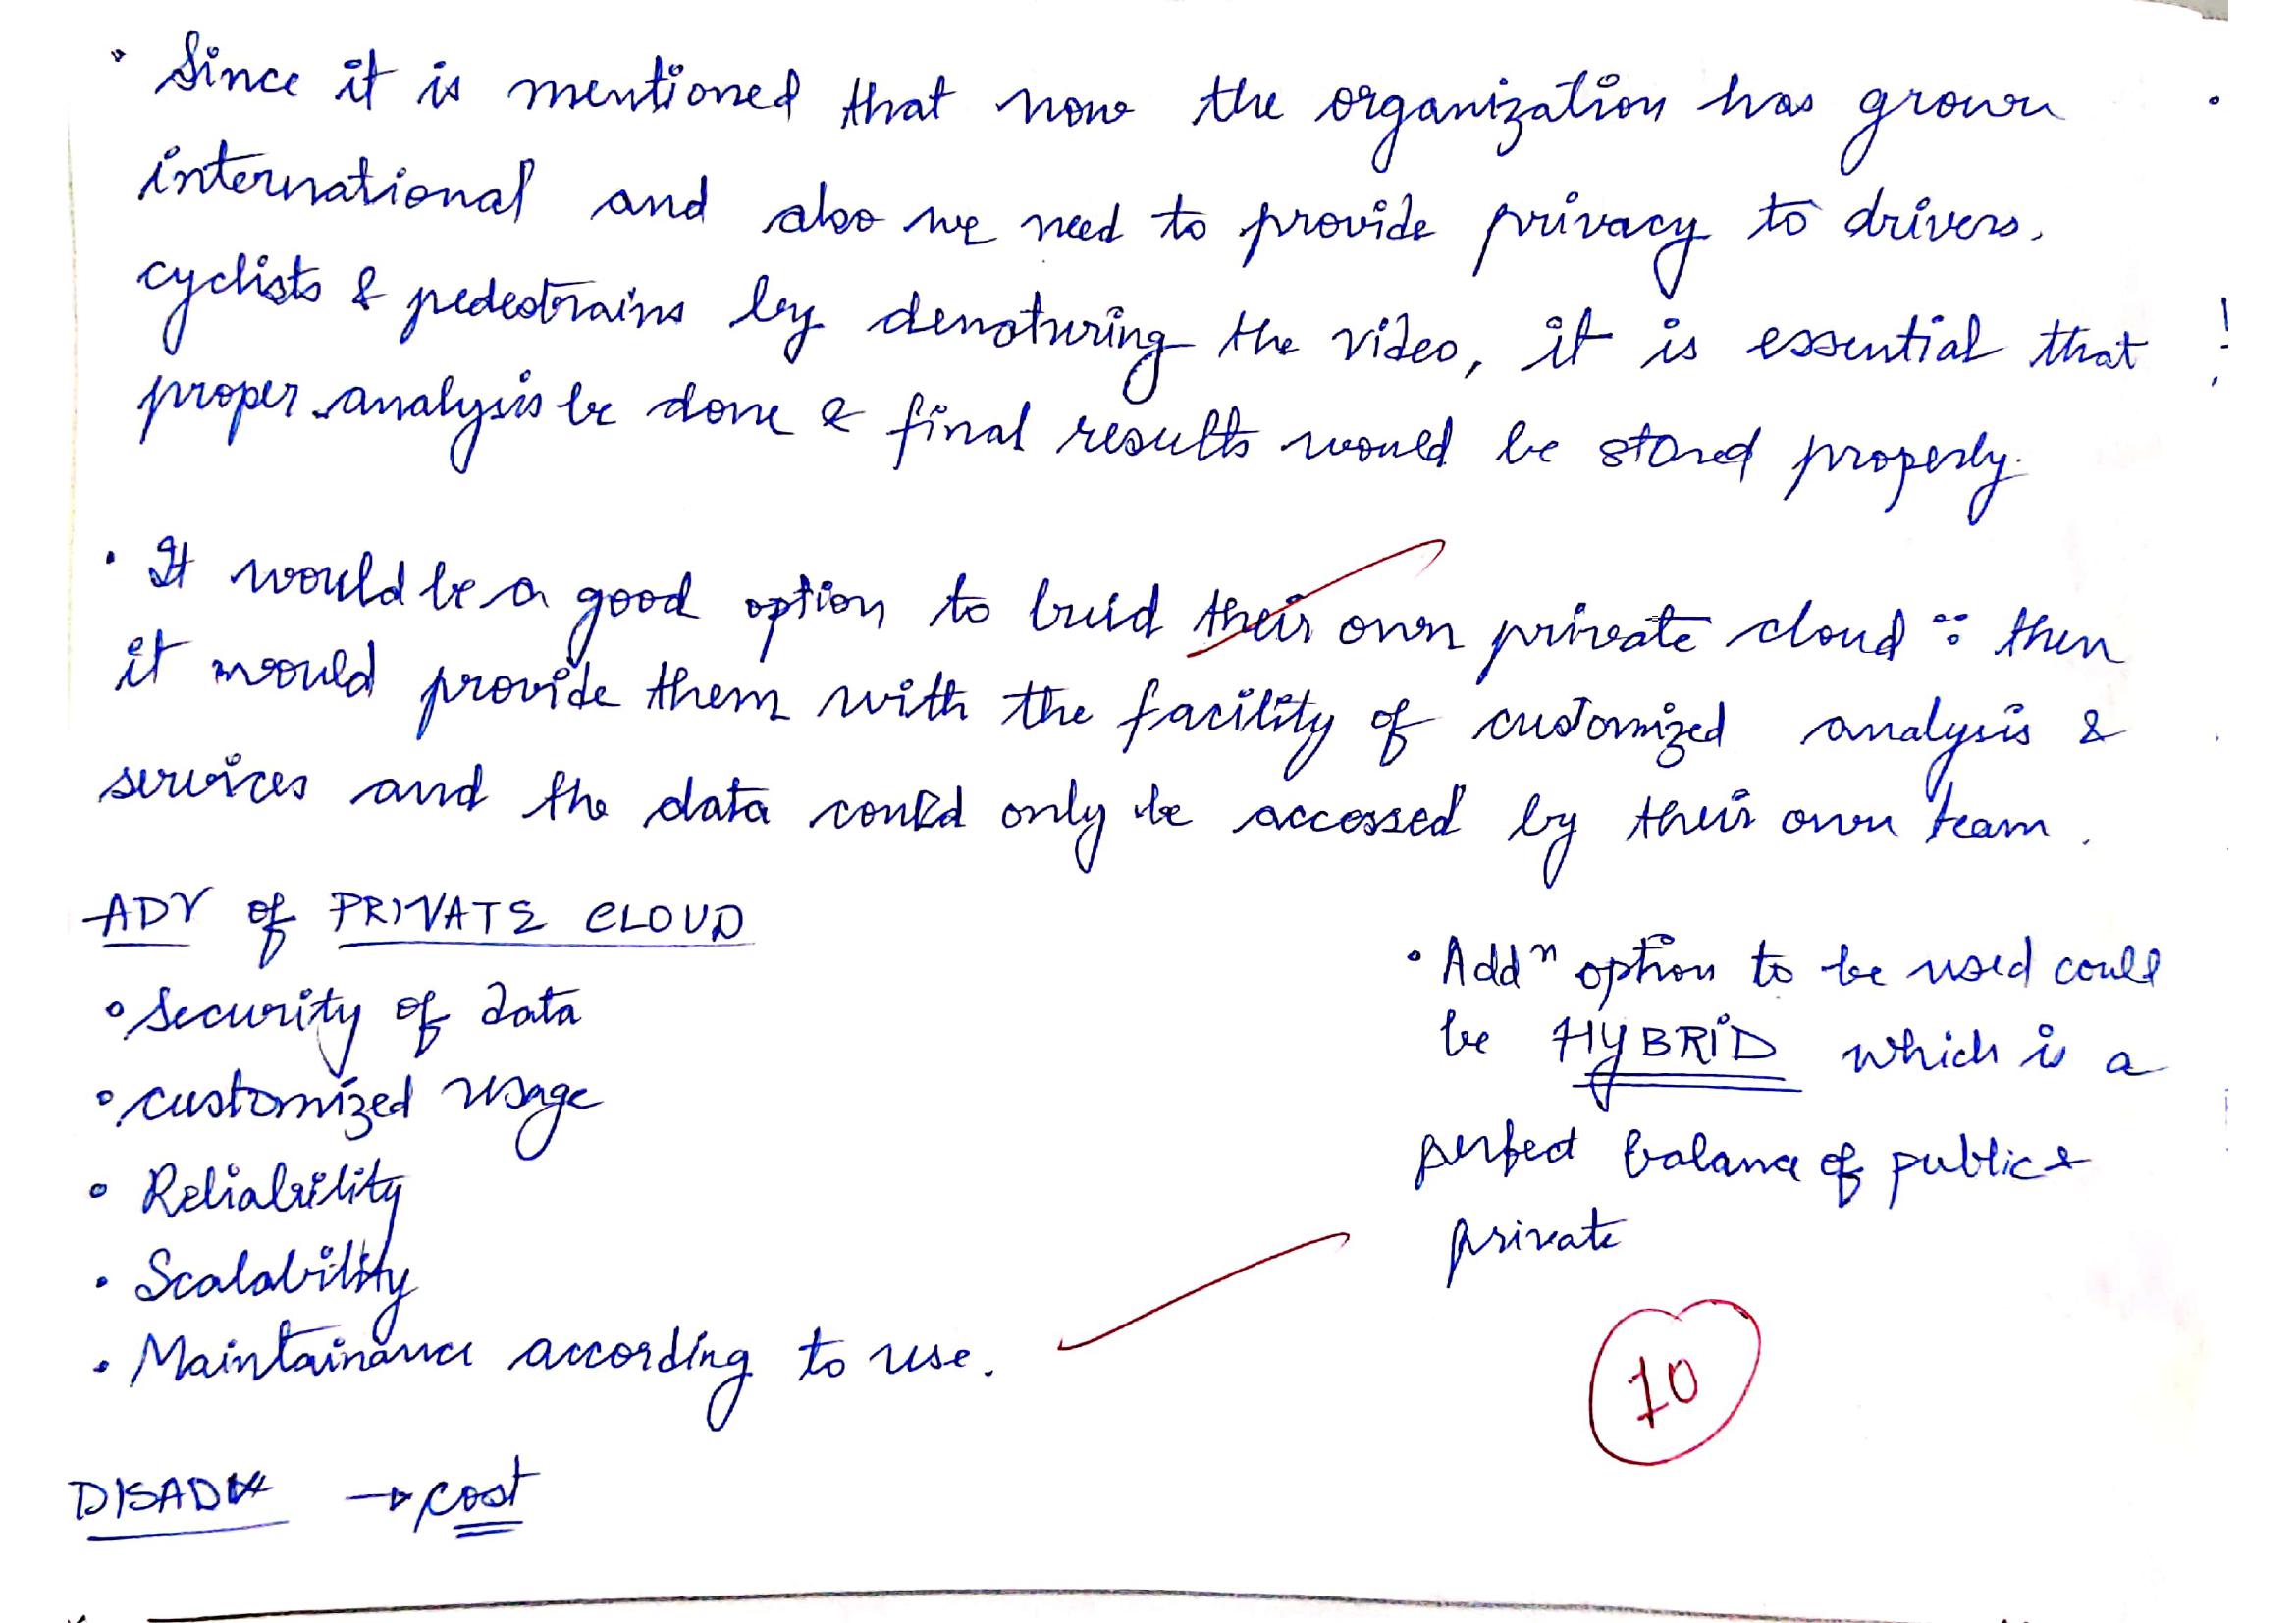 • Since it is mentioned that now the organization has grown
international and also we need to provide privacy to drivers,
cyclists & pedestrains by denaturing the video, it is essential that
proper analysis be done & final results would be stored properly.
• It would be a good option to buid their own private cloud ∵ then
it would provide them with the facility of customized analysis &
services and the data could only be accessed by their own team.
ADV of PRIVATE CLOUD
• Security of data
• customized usage
• Reliability
• Scalability
• Maintainance according to use.
DISADV → cost
• Addn option to be used could
be HYBRID which is a
perfect balance of public &
private
10